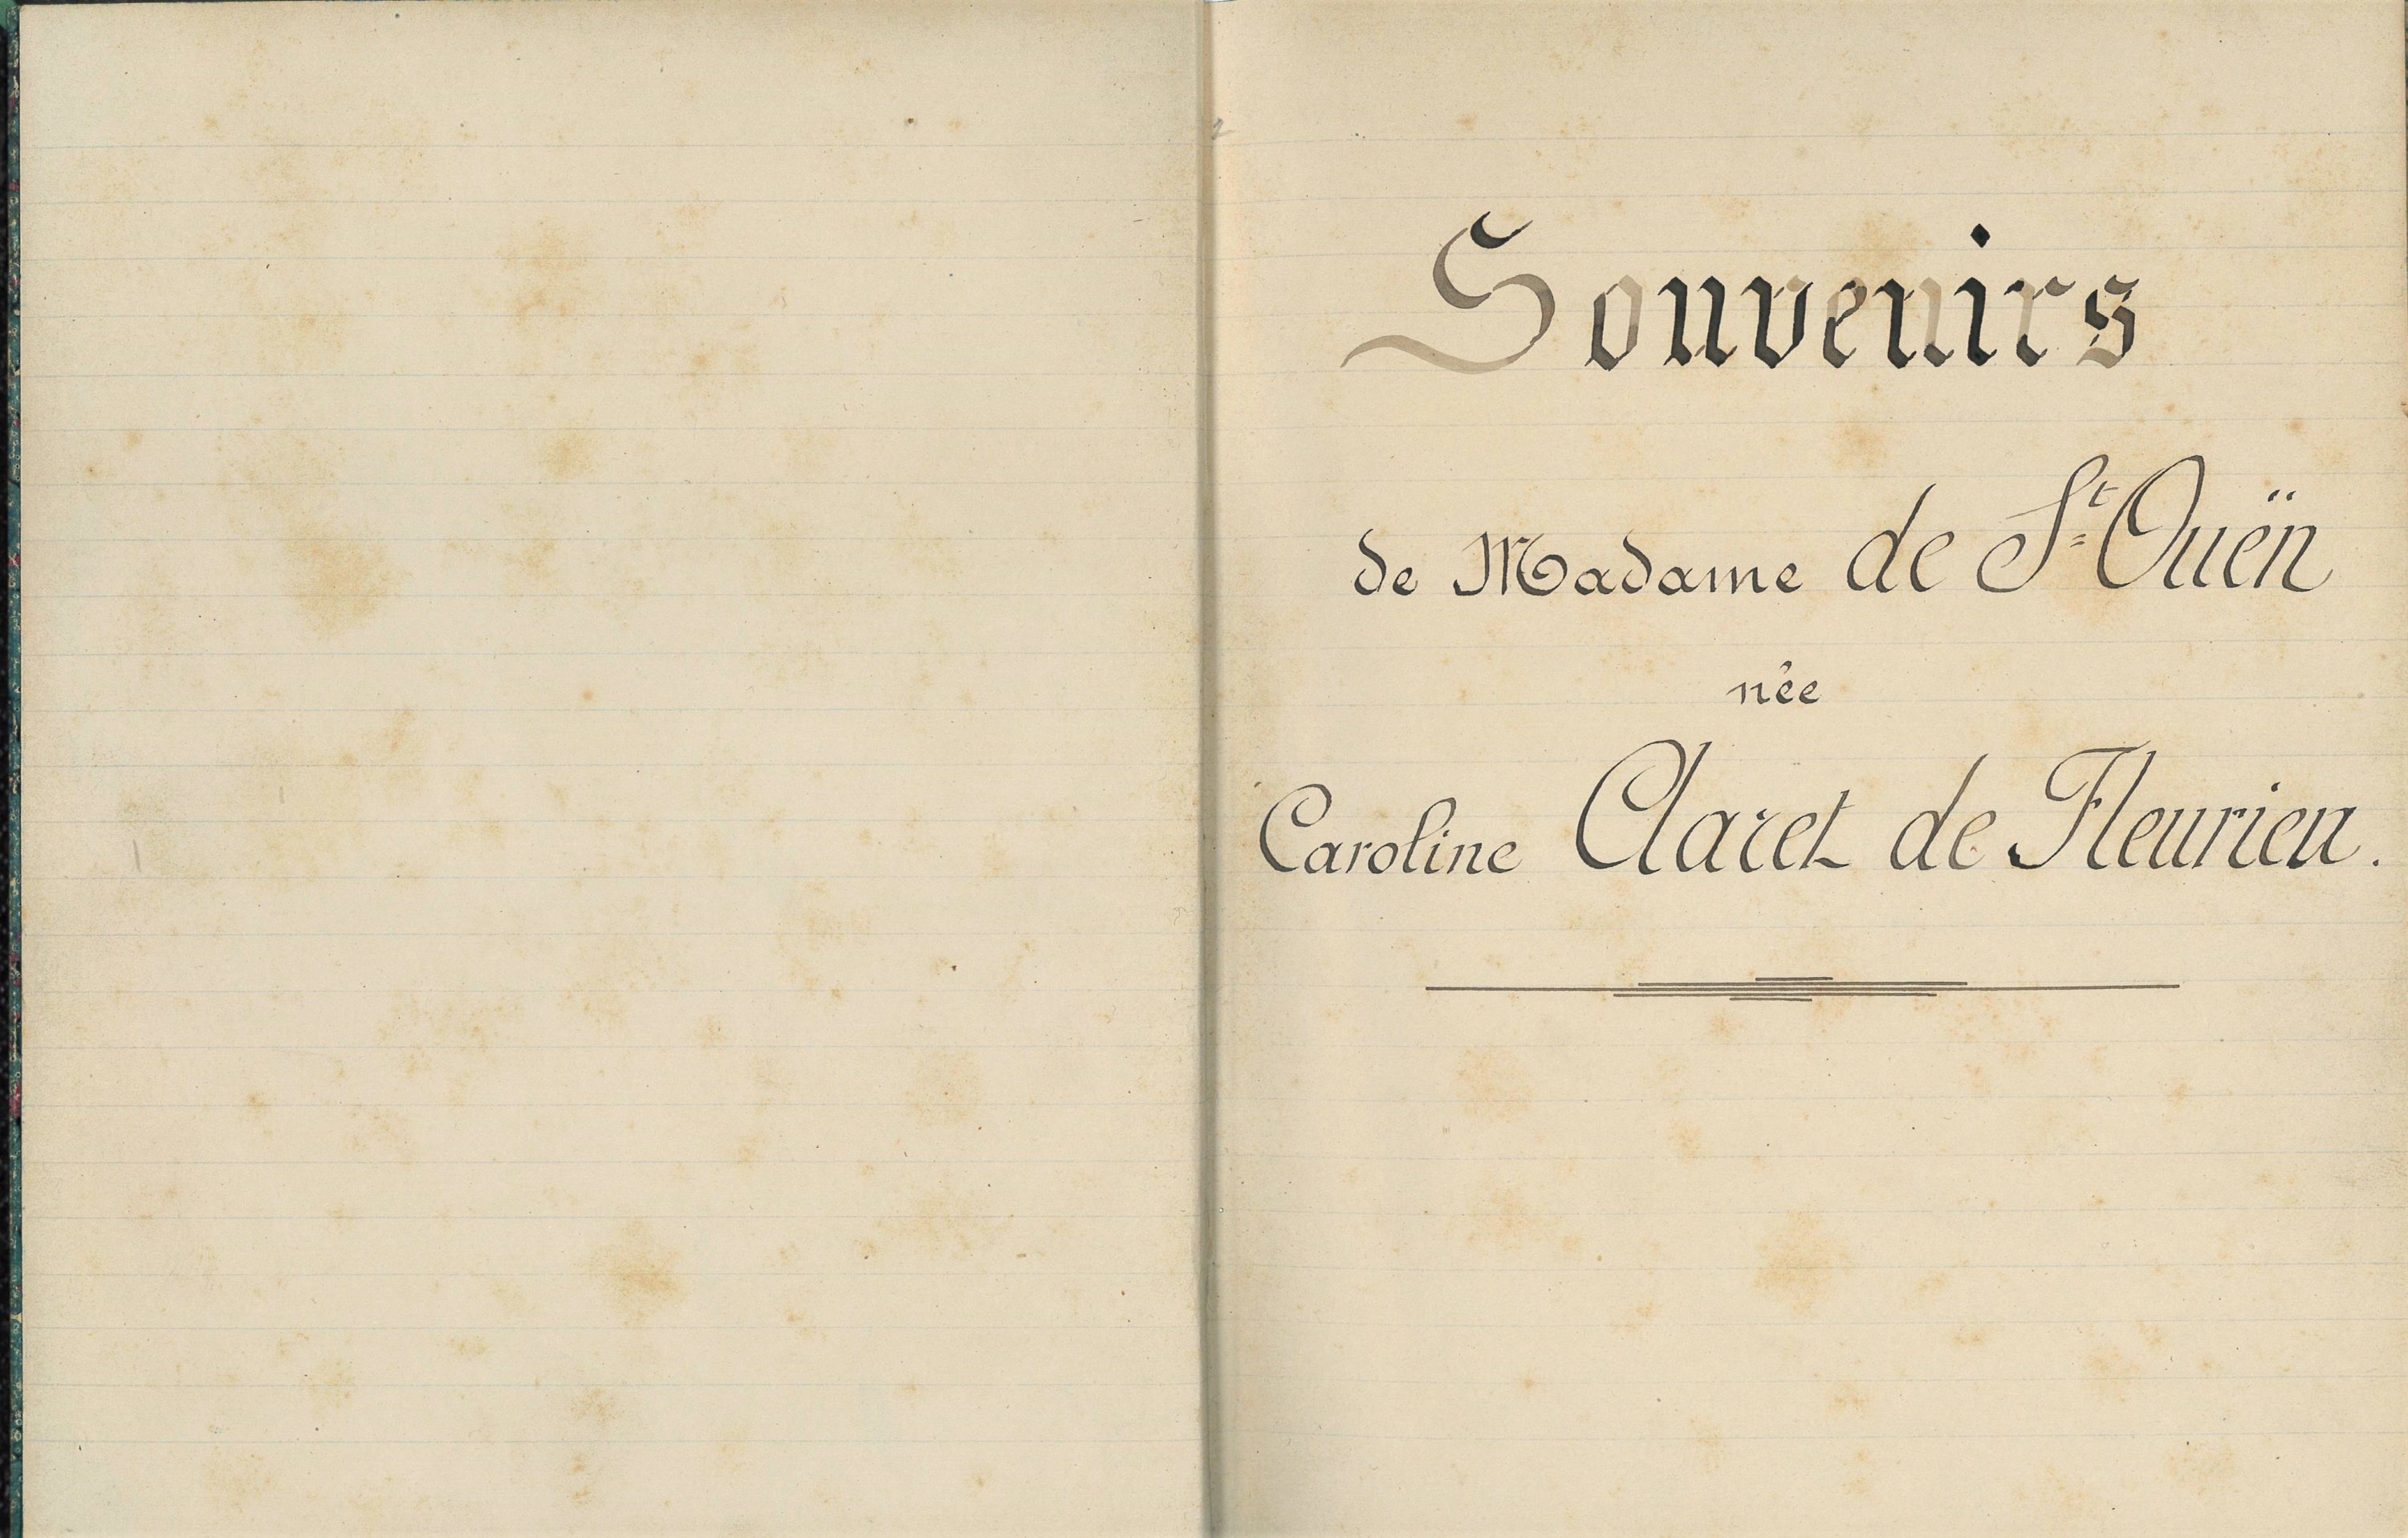 Souvenirs
de Madame de St Ouën
née
Caroline Claret de Fleurieu.